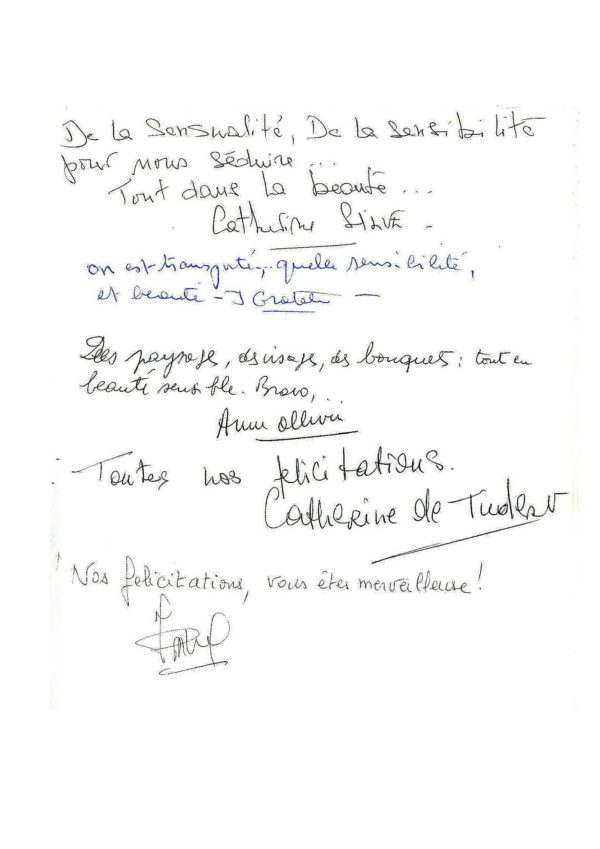 De la Sensualité, De la sensibilité
pour nous séduire...
Tout dans la beauté...
Catherine
on est transporté, quelle sensibilité,
et beauté - J
Des paysages, des visages, des bouquets : tout en
beauté sensible. Bravo,...
Anne Ollivier
Toutes nos félicitations.
Catherine de
Nos félicitations, vous êtes merveilleuse !